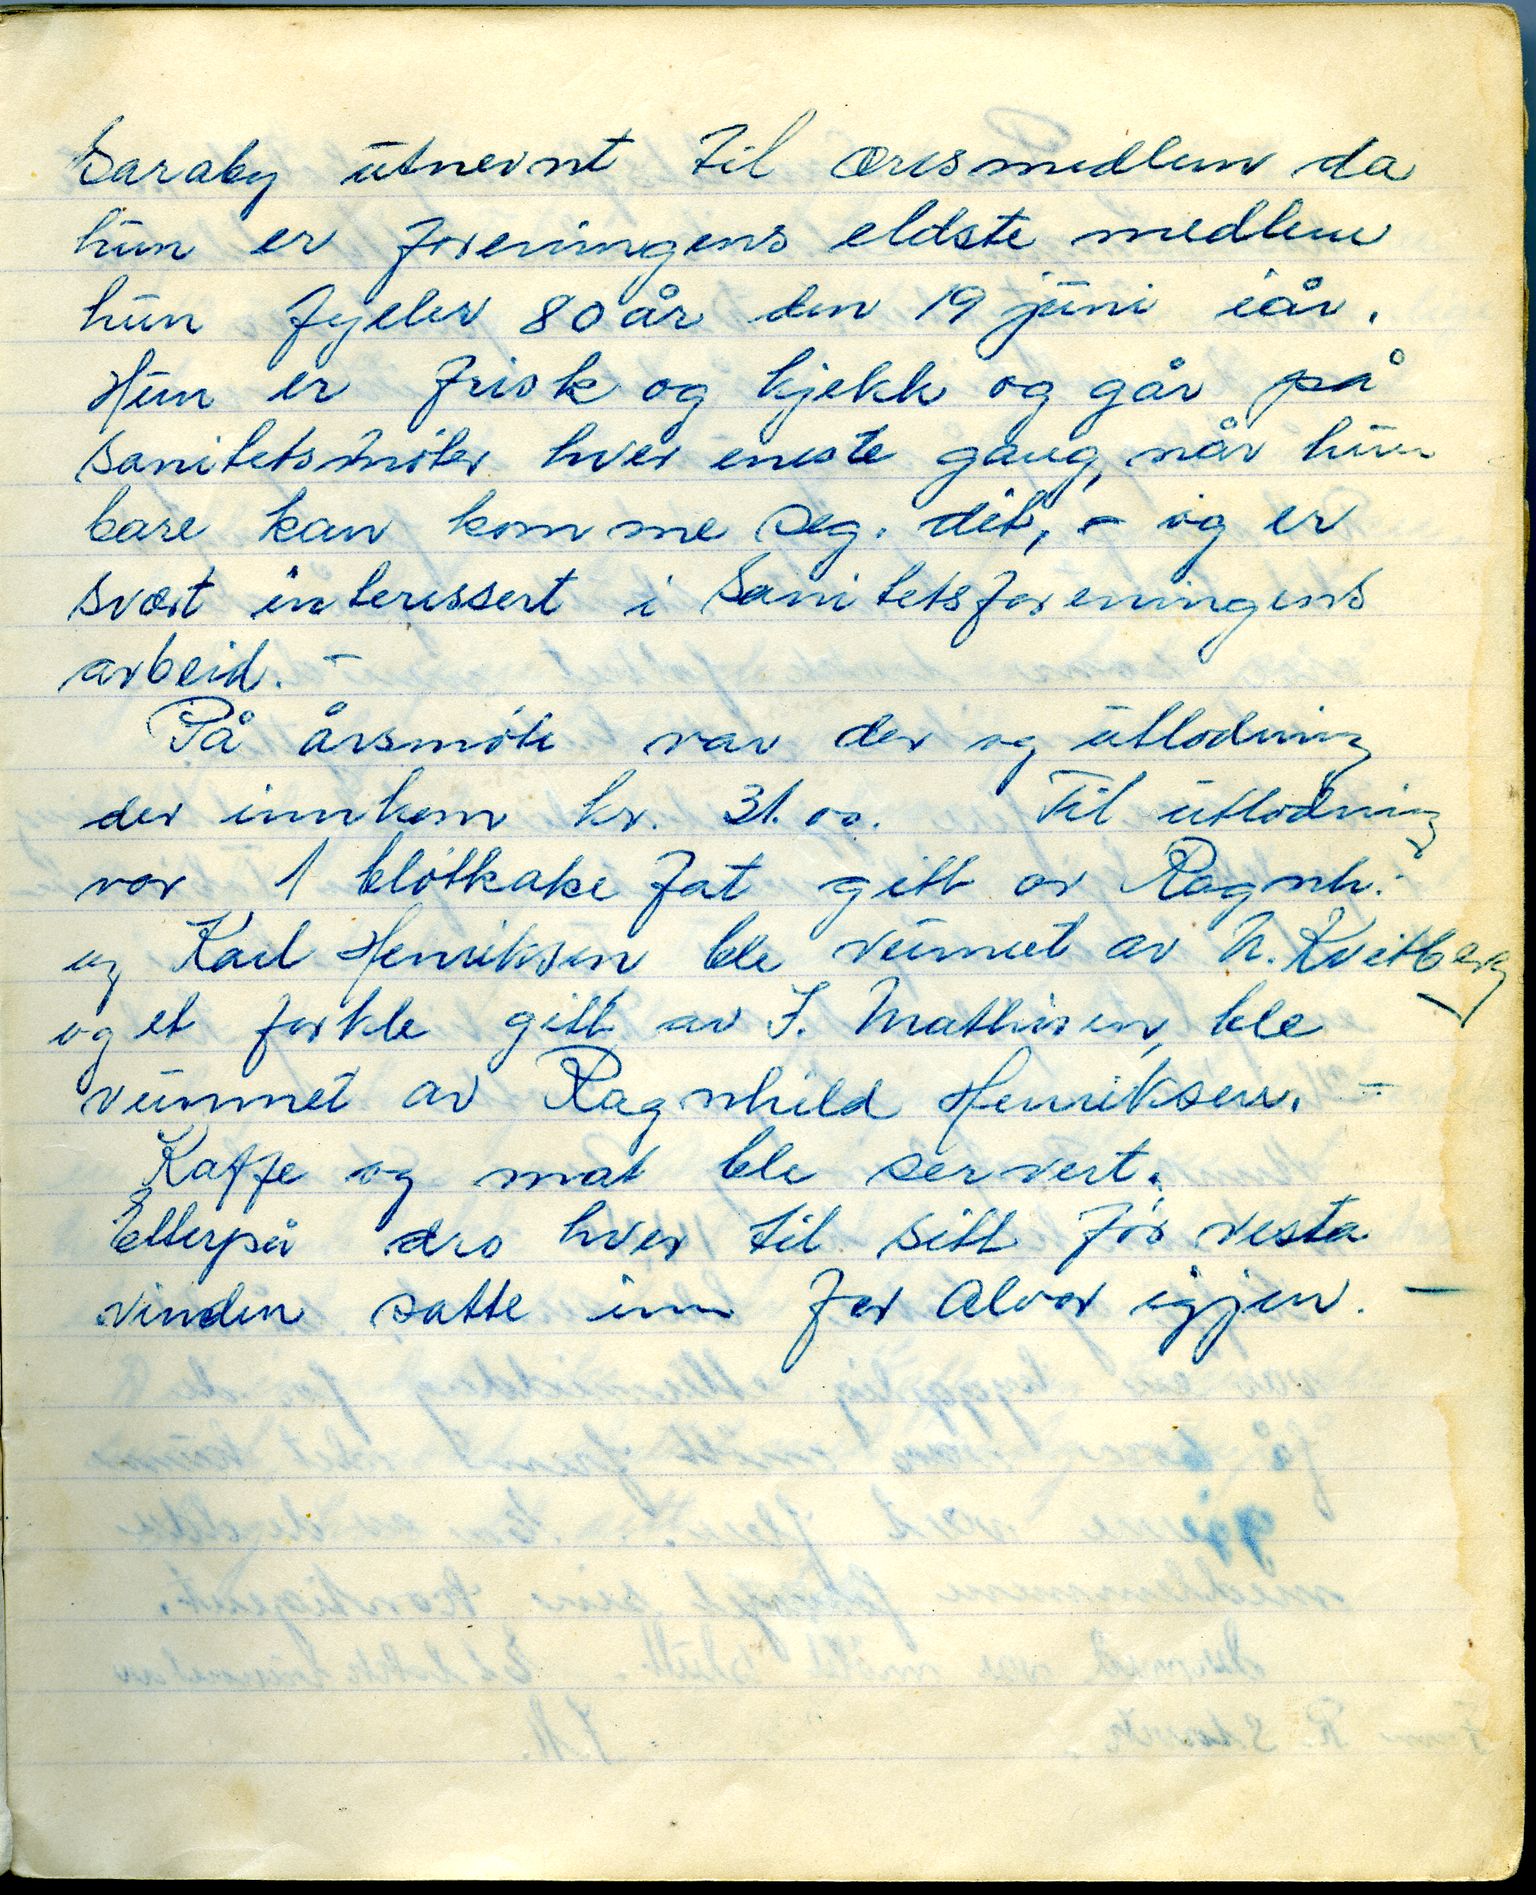 Saraby utnevnt til æresmedlem da
hun er foreningens eldste medlem
hun fyller 80 år den 19 juni iår.
Hun er frisk og kjekk og går på
sanitetsmøter hver eneste gang, når hun
bare kan komme seg. dit, - og er
svært interessert i Sanitetsforeningens
arbeid. -
På årsmøte var der og utlodning
der innkom kr. 31.00. Til utlodning
var 1 bløtkake fat gitt av Ragnh.
og Karl Henriksen ble vunnet av N. Kvitberg
og et forkle gitt av I. Mathisen, ble
vunnet av Ragnhild Henriksen. -
Kaffe og mat ble servert.
Etterpå dro hver til sitt før vesta
vinden satte inn for alvor igjen. -